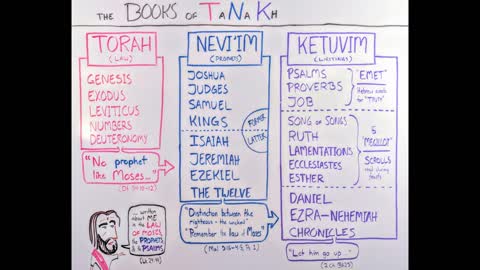 THE BOOKS OF TaNaKh
TORAH
(LAW)
GENESIS
EXODUS
LEVITICUS
NUMBERS
DEUTERONOMY
"No prophet
like Moses..."
(Dt 34:10-12)
...written
about ME
in the LAW
OF MOSES,
the PROPHETS
& the PSALMS
(Lk 24:44)
NEVI'IM
(PROPHETS)
JOSHUA
JUDGES
SAMUEL
KINGS
FORMER
LATTER
ISAIAH
JEREMIAH
EZEKIEL
THE TWELVE
"Distinction between the
righteous & the wicked"
"Remember the law of Moses"
KETUVIM
(WRITINGS)
PSALMS
PROVERBS
JOB
"EMET"
Hebrew word
for "TRUTH"
SONG OF SONGS
RUTH
LAMENTATIONS
ECCLESIASTES
ESTHER
5
"MEGILLOT"
SCROLLS
read during
feasts
DANIEL
EZRA-NEHEMIAH
CHRONICLES
"Let him go up..."
(2 Ch 36:23)